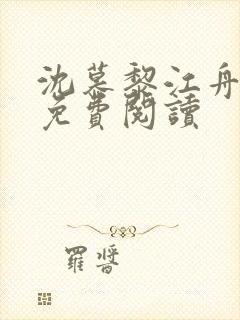 沈慕黎江舟
免費閱讀
羅醬